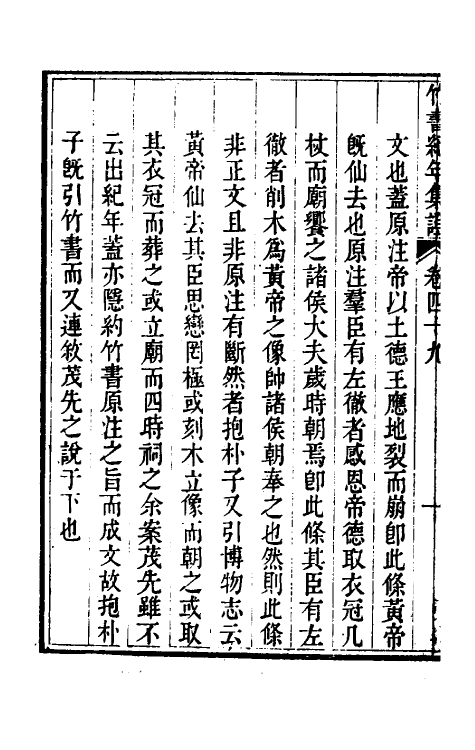 竹書紀年集證 卷四十九 十
文也蓋原注帝以土德王應地裂而崩卽此條黃帝
旣仙去也原注羣臣有左徹者感恩帝德取衣冠几
杖而廟饗之諸侯大夫歲時朝焉卽此條其臣有左
徹者削木爲黃帝之像帥諸侯朝奉之也然則此條
非正文且非原注有斷然者抱朴子又引博物志云
黃帝仙去其臣思戀罔極或刻木立像而朝之或取
其衣冠而葬之或立廟而四時祠之余案茂先雖不
云出紀年蓋亦隱約竹書原注之旨而成文故抱朴
子旣引竹書而又連敘茂先之說于下也